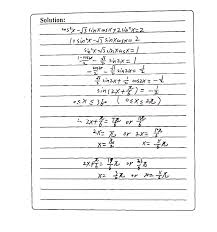 Solution:
cos²x-√3 sinxcosx+2sin²x=2
1+sin²x-√3 sinxcosx=2
sin²x-√3 sinxcosx=1
(1-cos2x)/2 - √3/2 sin2x=1
-cos2x/2 - √3/2 sin2x=1/2
√3/2 sin2x+1/2 cos2x=-1/2
sin(2x+π/6)=-1/2
0≤x≤ (0≤x≤2π)
∴ 2x+π/6=7π/6 or 11π/6
2x=π or 2x=5π/3
x=π/2 or x=5π/6
2x+π/6= π or π
x= π or x= π